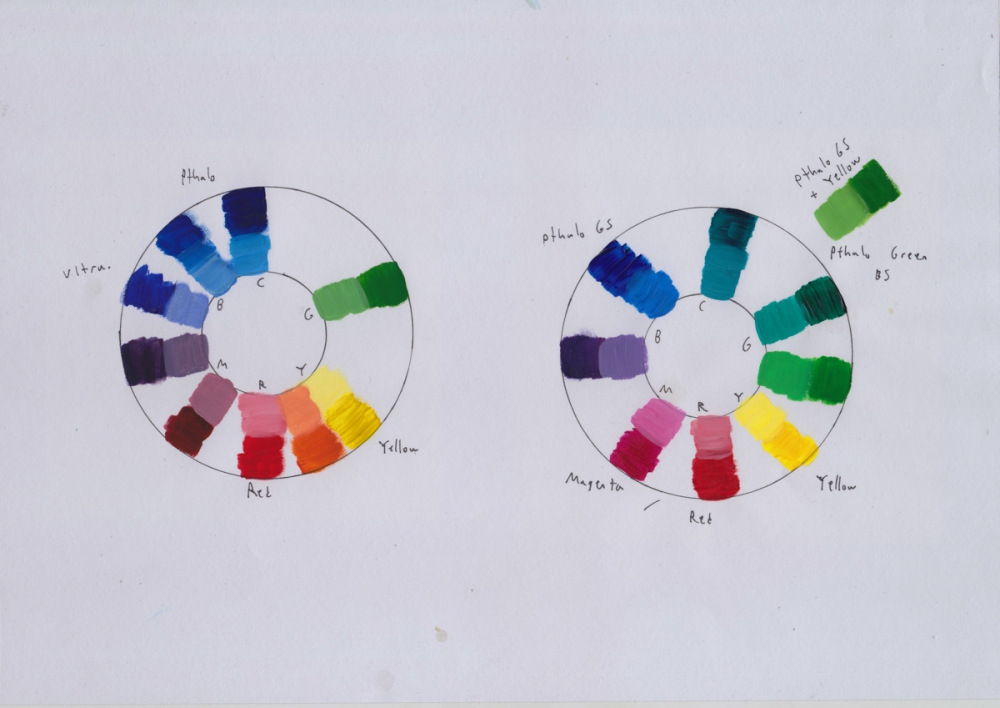 Pthalo
Ultra.
C
B
G
M
R
Y
Yellow
Red
pthalo GS
+ Yellow
pthalo GS
Pthalo Green
BS
C
B
G
M
R
Y
Magenta
Yellow
Red